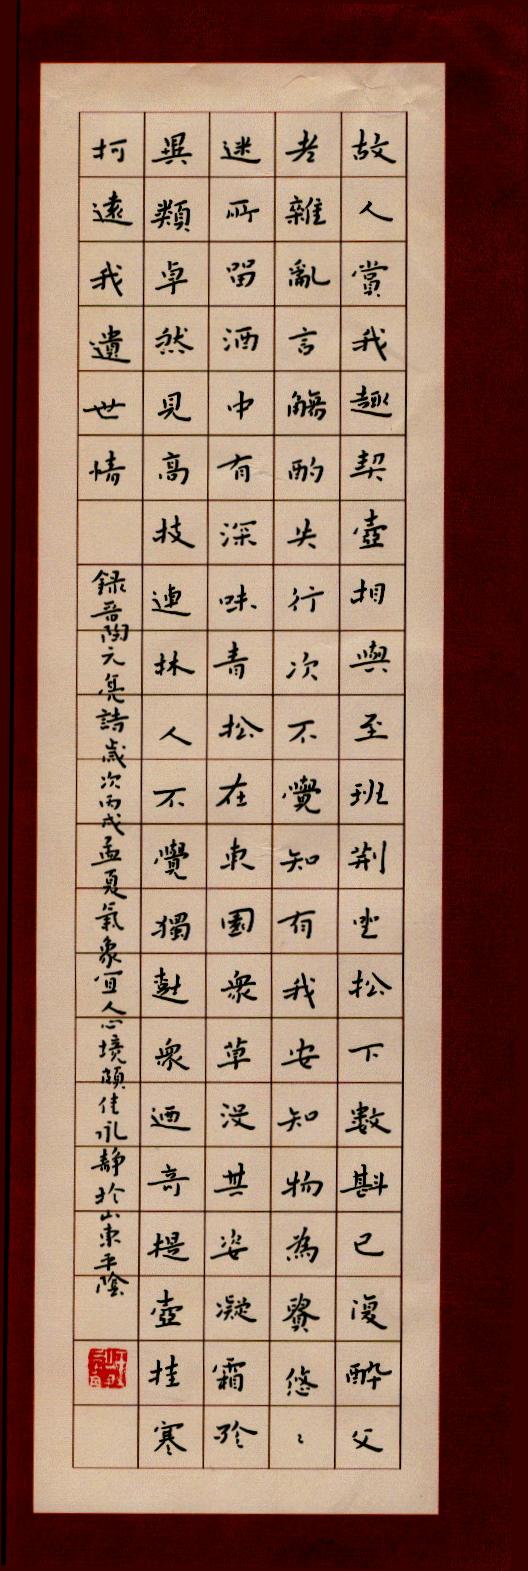 故人賞我趣挈壺相與至班荊坐松下數斟已復醉父
老雜亂言觴酌失行次不覺知有我安知物為貴悠〻
迷所留酒中有深味青松在東園衆草沒其姿凝霜殄
異類卓然見高枝連林人不覺獨樹衆迺奇提壺挂寒
柯遠我遺世情
録晉陶元亮詩歲次丙戌孟夏氣象宜人心境頗佳永靜於山東平陰